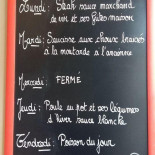 Lundi : Steak sauce marchand
de vin et ses pâtes maison
Mardi : Saucisse aux choux braisés
à la moutarde à l'ancienne
Mercredi : FERMÉ
Jeudi : Poule au pot et ses légumes
d'hiver sauce blanche
Vendredi : Poisson du jour